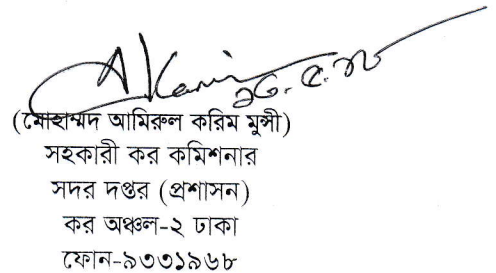 (মোহাম্মদ আমিরুল করিম মুন্সী)
সহকারী কর কমিশনার
সদর দপ্তর (প্রশাসন)
কর অঞ্চল-২ ঢাকা
ফোন-৯৩৩১৯৬৮